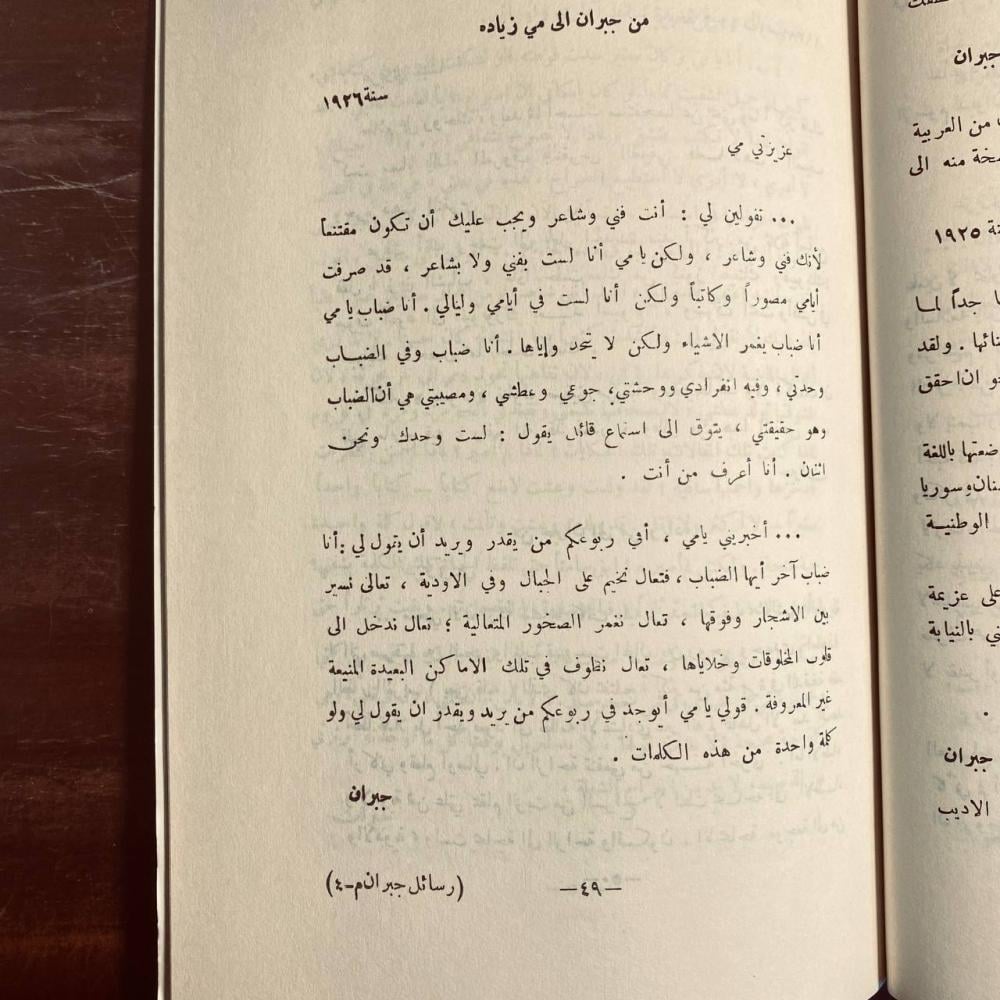 من جبران الى مي زياده
سنة ١٩٢٦
عزيزتي مي
... تقولين لي : أنت فني وشاعر ويجب عليك أن تكون مقتنعاً
لأنك فني وشاعر ، ولكن يا مي أنا لست بفني ولا بشاعر ، قد صرفت
أيامي مصوراً وكاتباً ولكن أنا لست في أيامي وليالي . أنا ضباب يا مي
أنا ضباب يغمر الاشياء ولكن لا يتحد وإياها . أنا ضباب وفي الضبـاب
وحدتي ، وفيه انفرادي ووحشتي، جوعي وعطشي ، ومصيبتي هي أن الضباب
وهو حقيقتي ، يتوق الى استماع قائل يقول : لست وحدك ونحن
اثنان . أنا أعرف من أنت .
... أخبريني يامي ، أفي ربوعكم من يقدر ويريد أن يقول لي : أنا
ضباب آخر أيها الضباب ، فتعال نخيم على الجبال وفي الاودية ، تعالى نسير
بين الاشجار وفوقها ، تعال نغمر الصخور المتعالية ؛ تعال ندخل الى
قلوب المخلوقات وخلاياها ، تعال نظوف في تلك الاماكن البعيدة المنيعة
غير المعروفة . قولي يا مي أيوجد في ربوعكم من يريد ويقدر ان يقول لي ولو
كلمة واحدة من هذه الكلمات .
جبران
—٤٩—
(رسائل جبران م-٤)
جبران
من العربية
نسخة منه الى
١٩٢٥
جداً لما
. ولقد
ان احقق
باللغة
وسوريا
الوطنيـة
على عزيمة
بالنيابة
.
جبران
الاديب